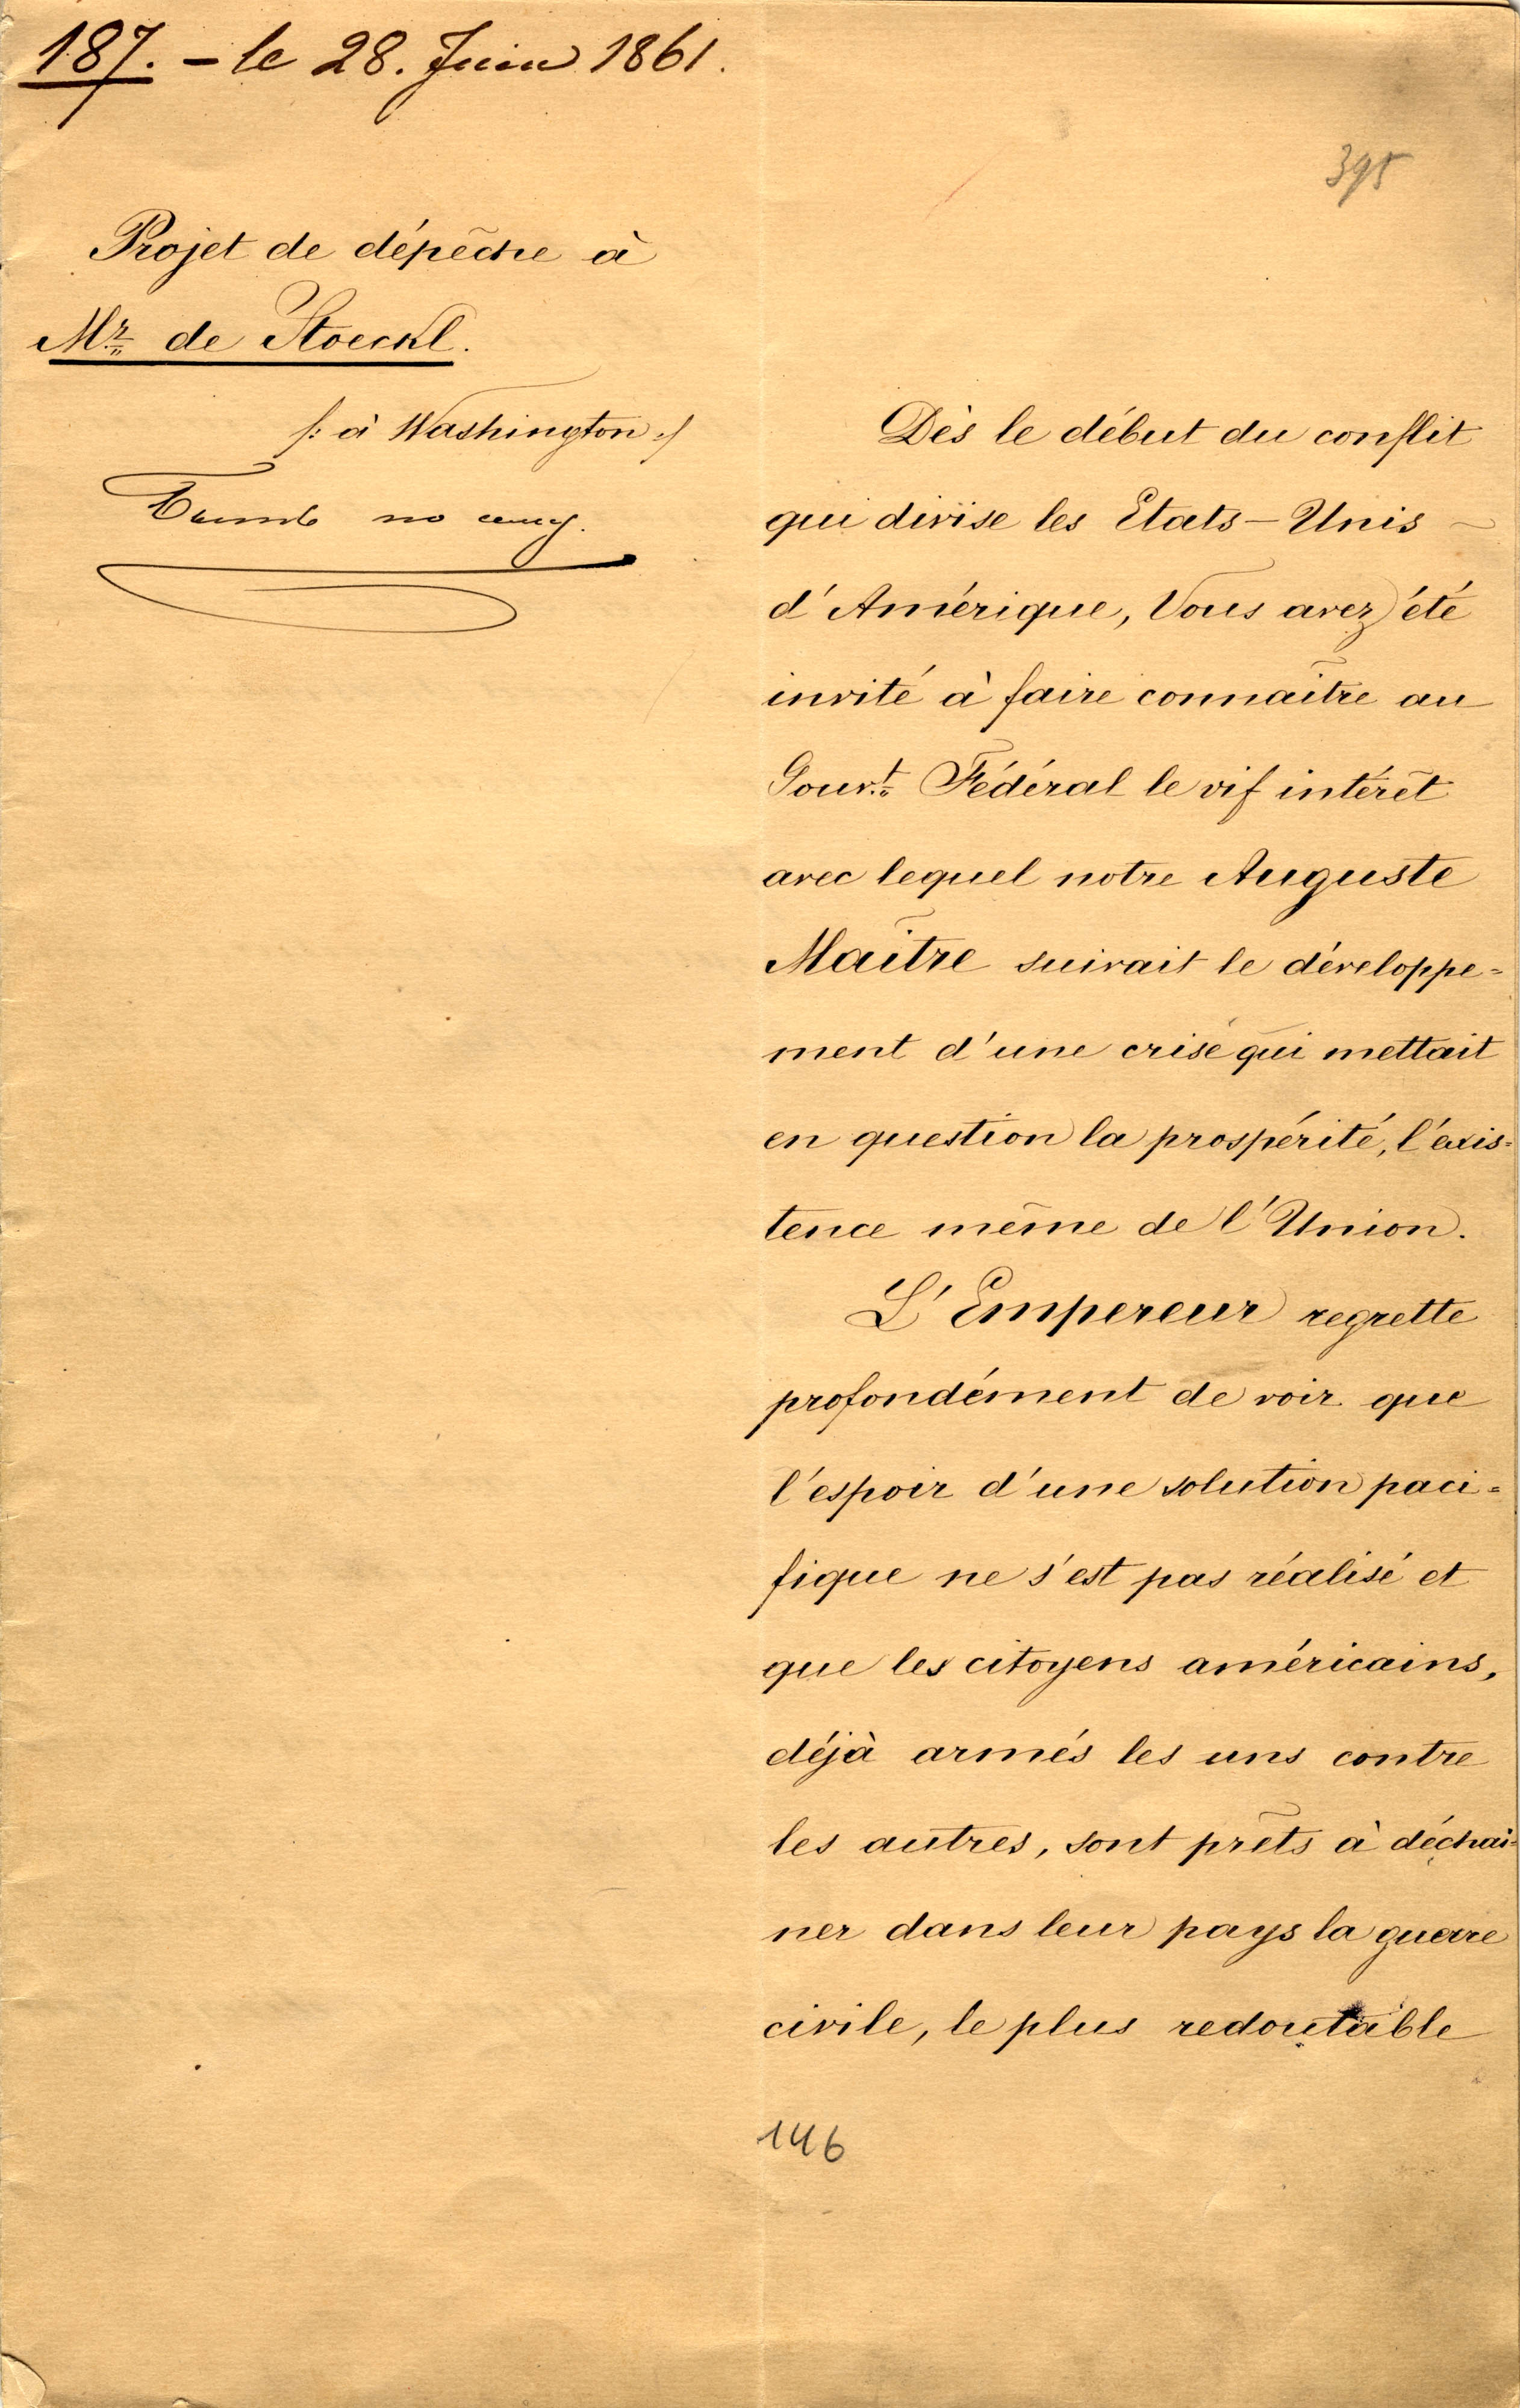 187. – le 28. Juin 1861.
395
Projet de dépêche à
Mr de Stoeckl.
/: à Washington :/
Dès le début du conflit
qui divise les Etats-Unis
d'Amérique, Vous avez été
invité à faire connaître au
Gouvt. Fédéral le vif intérêt
avec lequel notre Auguste
Maître suivait le développe=
ment d'une crise qui mettait
en question la prospérité, l'exis=
tence même de l'Union.
L'Empereur regrette
profondément de voir que
l'espoir d'une solution paci=
fique ne s'est pas réalisé et
que les citoyens américains,
déjà armés les uns contre
les autres, sont prêts à déchaî=
ner dans leur pays la guerre
civile, le plus redoutable
146